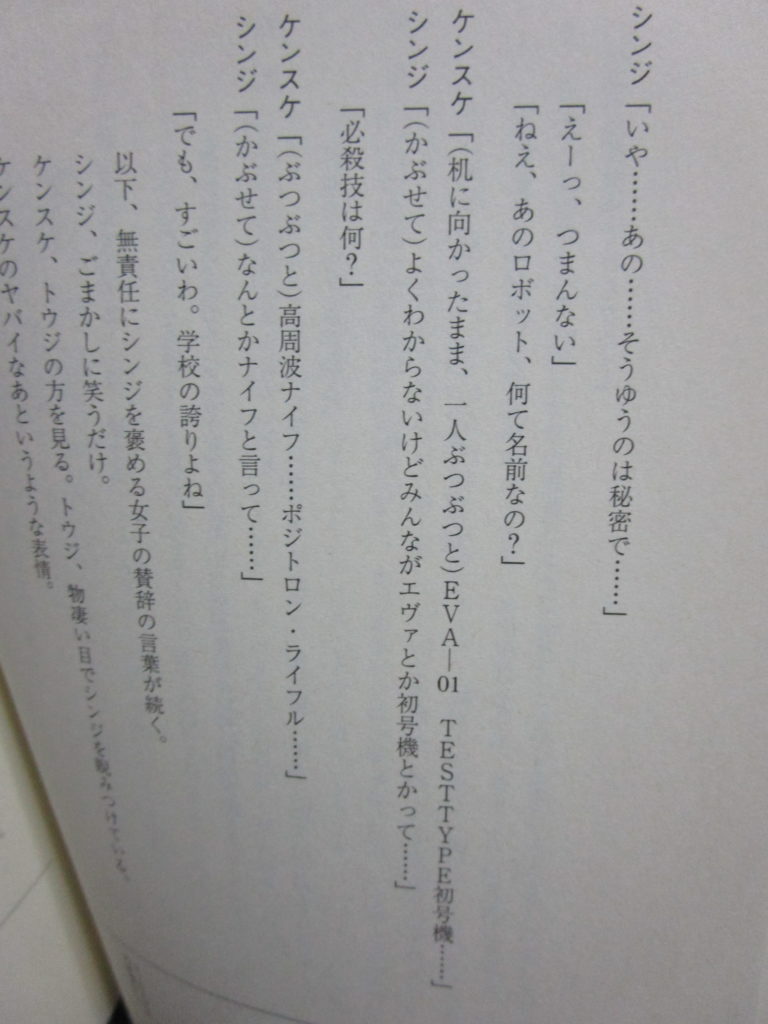 シンジ「いや……あの……そうゆうのは秘密で……」
「えーっ、つまんない」
「ねえ、あのロボット、何て名前なの？」
ケンスケ「(机に向かったまま、一人ぶつぶつと)EVA—01　TESTTYPE初号機……」
シンジ「(かぶせて)よくわからないけどみんながエヴァとか初号機とかって……」
「必殺技は何？」
ケンスケ「(ぶつぶつと)高周波ナイフ……ポジトロン・ライフル……」
シンジ「(かぶせて)なんとかナイフと言って……」
「でも、すごいわ。学校の誇りよね」
以下、無責任にシンジを褒める女子の賛辞の言葉が続く。
シンジ、ごまかしに笑うだけ。
ケンスケ、トウジの方を見る。トウジ、物凄い目でシンジを睨みつけている。
ケンスケのヤバイなあというような表情。